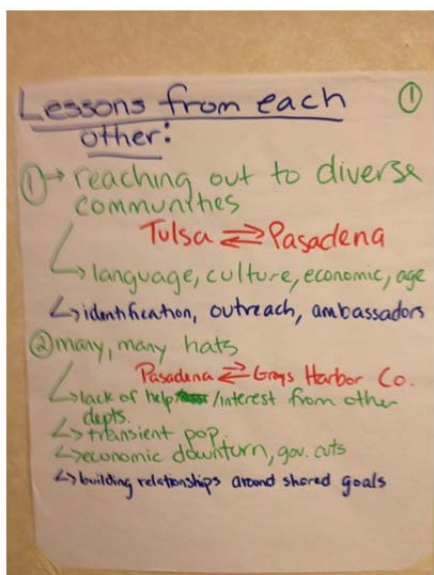 Lessons from each ①
other:
①→ reaching out to diverse
communities
Tulsa ⇄ Pasadena
↳ language, culture, economic, age
↳ identification, outreach, ambassadors
② many, many hats
Pasadena ⇄ Grays Harbor Co.
↳ lack of help /interest from other
depts.
↳ transient pop.
↳ economic downturn, gov. cuts
↳ building relationships around shared goals